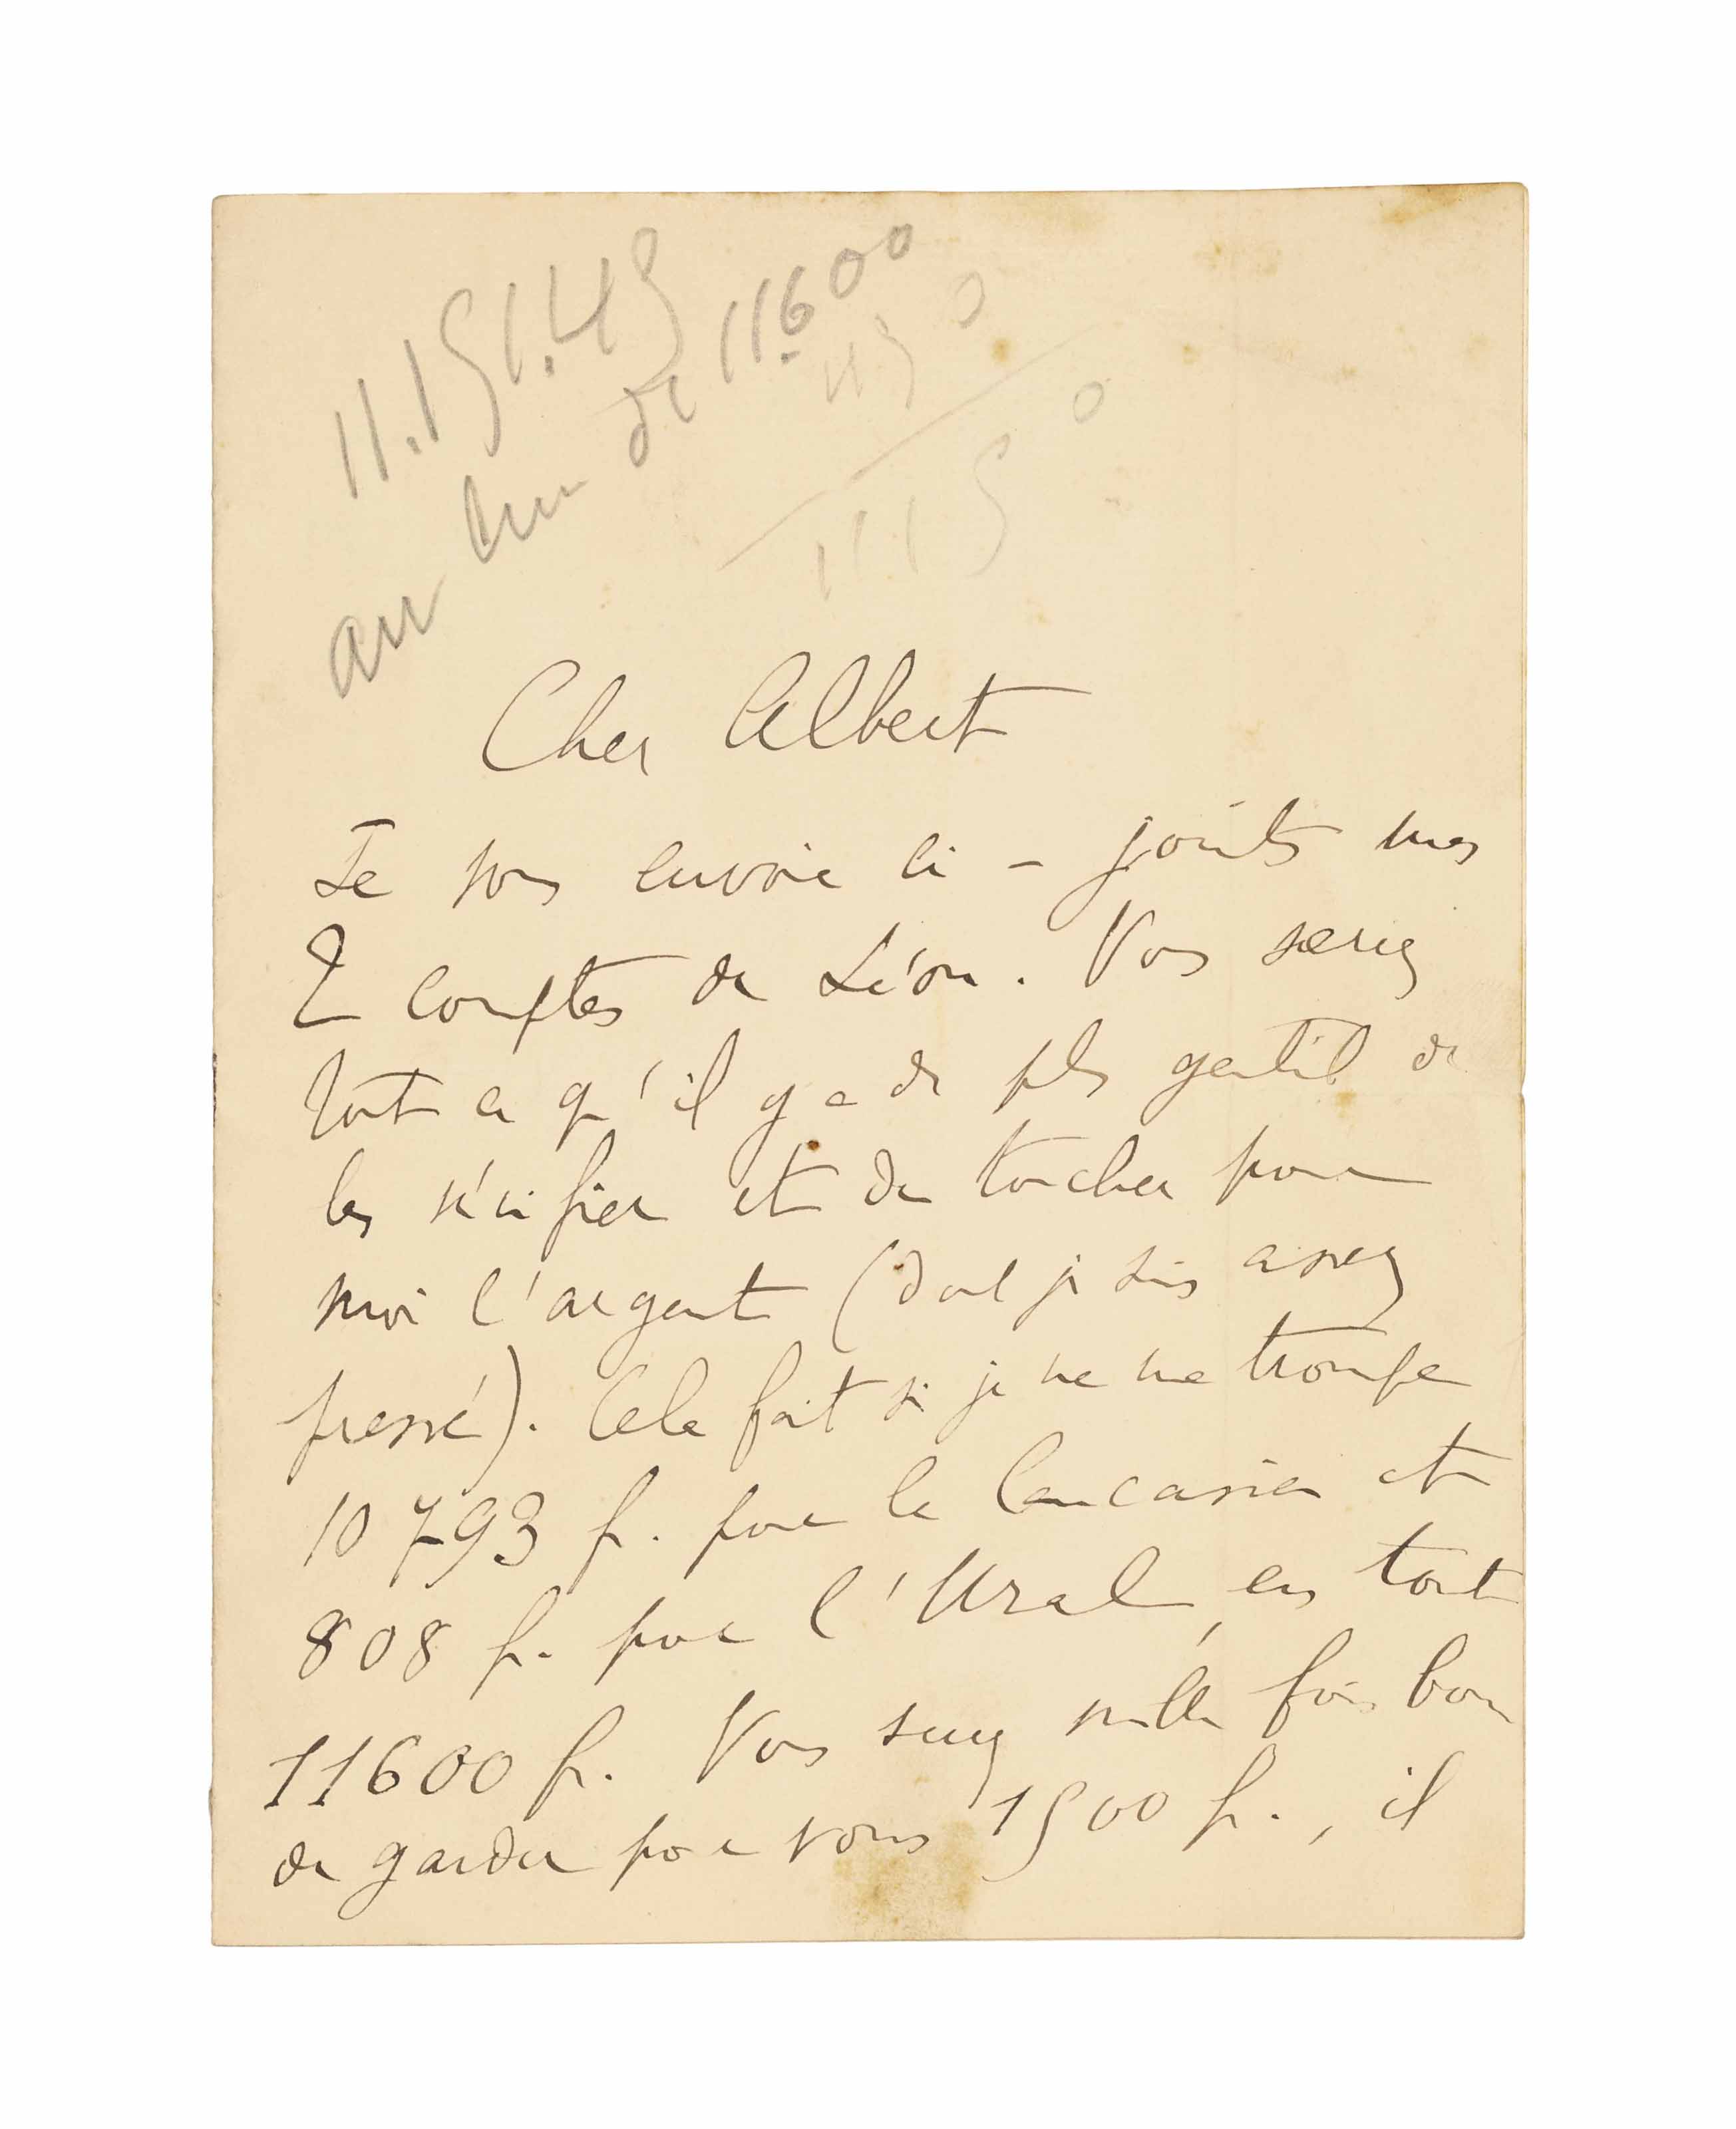 11.151.45
au lieu de 11600
450
1115 0
Cher Albert
Je vous envoie ci-joints mes
2 comptes de Léon. Vous seriez
tout ce qu'il y a de plus gentil de
les vérifier et de toucher pour
moi l'argent (dont je suis assez
pressé). Cela fait si je ne me trompe
10793 f. pour le Caucasien et
808 f. pour l'Ural, en tout
11600 f. Vous serez mille fois bon
de garder pour vous 1500 f., il